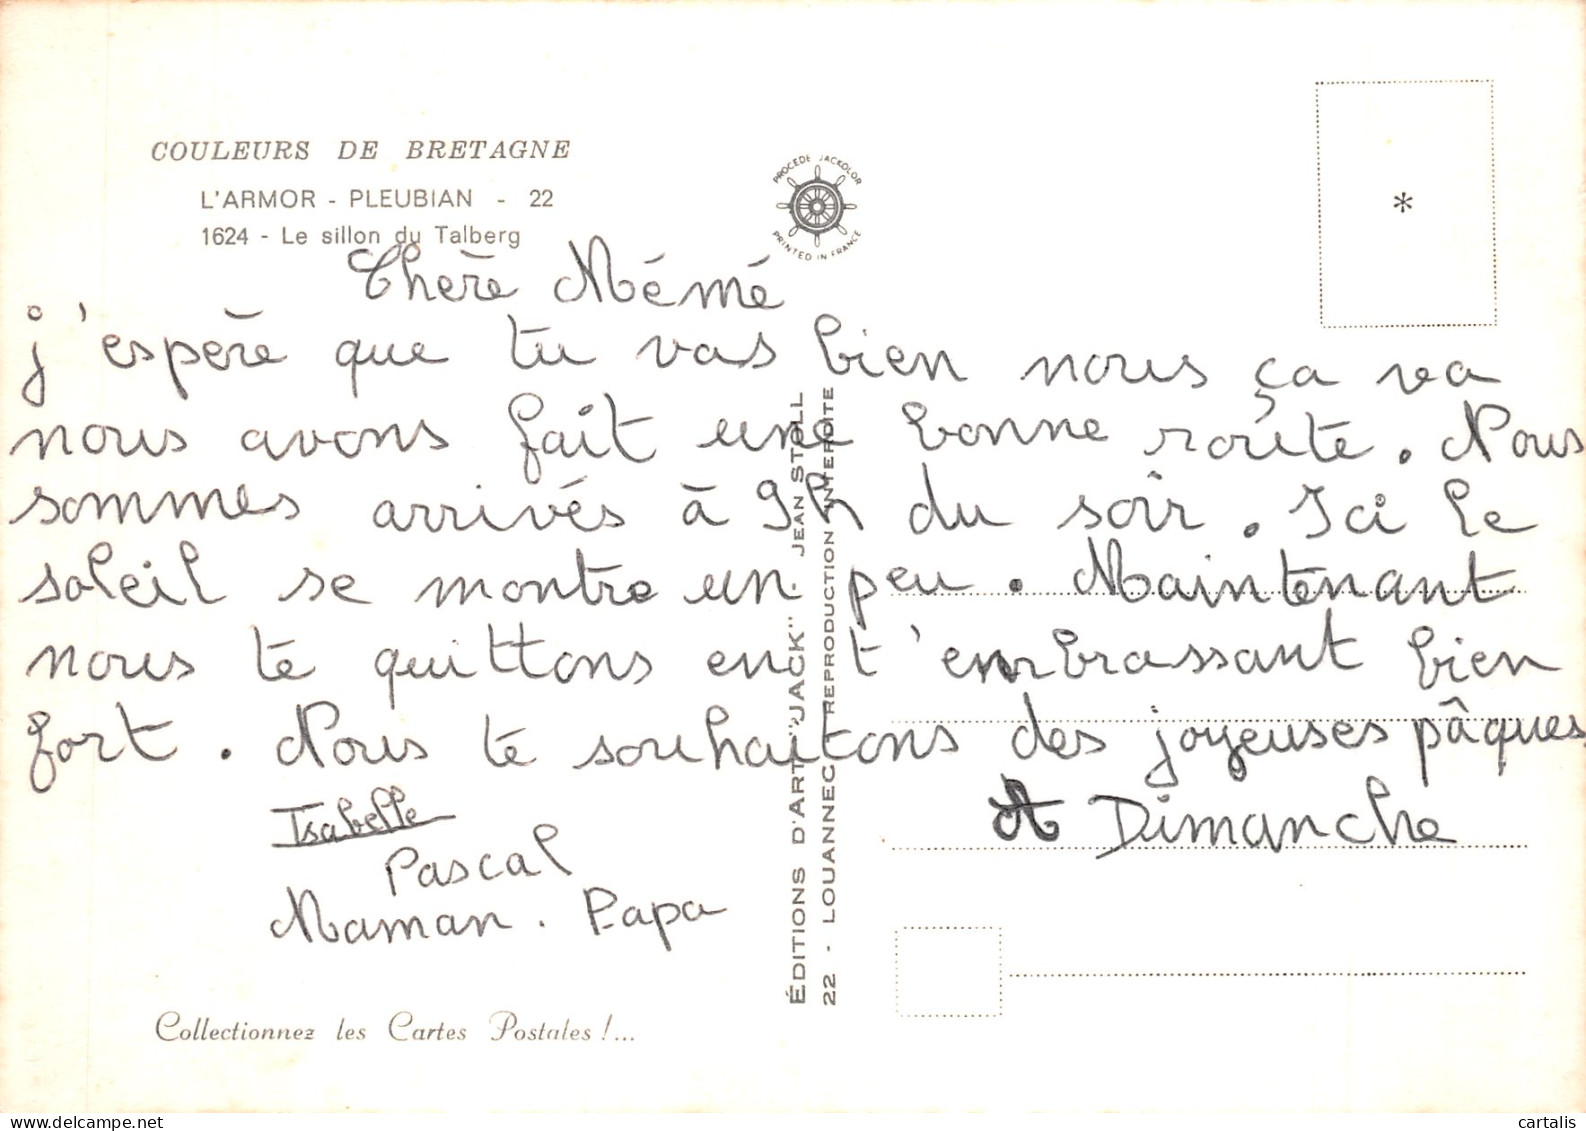 COULEURS DE BRETAGNE
L'ARMOR - PLEUBIAN - 22
1624 - Le sillon du Talberg
PROCEDE JACKOLOR
PRINTED IN FRANCE
*
Chère Mémé
j'espère que tu vas bien nous ça va
nous avons fait une bonne route. Nous
sommes arrivés à 9h du soir. Ici le
soleil se montre un peu. Maintenant
nous te quittons en t'embrassant bien
fort. Nous te souhaitons des joyeuses pâques
A Dimanche
Isabelle
Pascal
Maman. Papa
ÉDITIONS D'ART "JACK" JEAN STOLL
22 - LOUANNEC REPRODUCTION INTERDITE
Collectionnez les Cartes Postales !...
cartalis